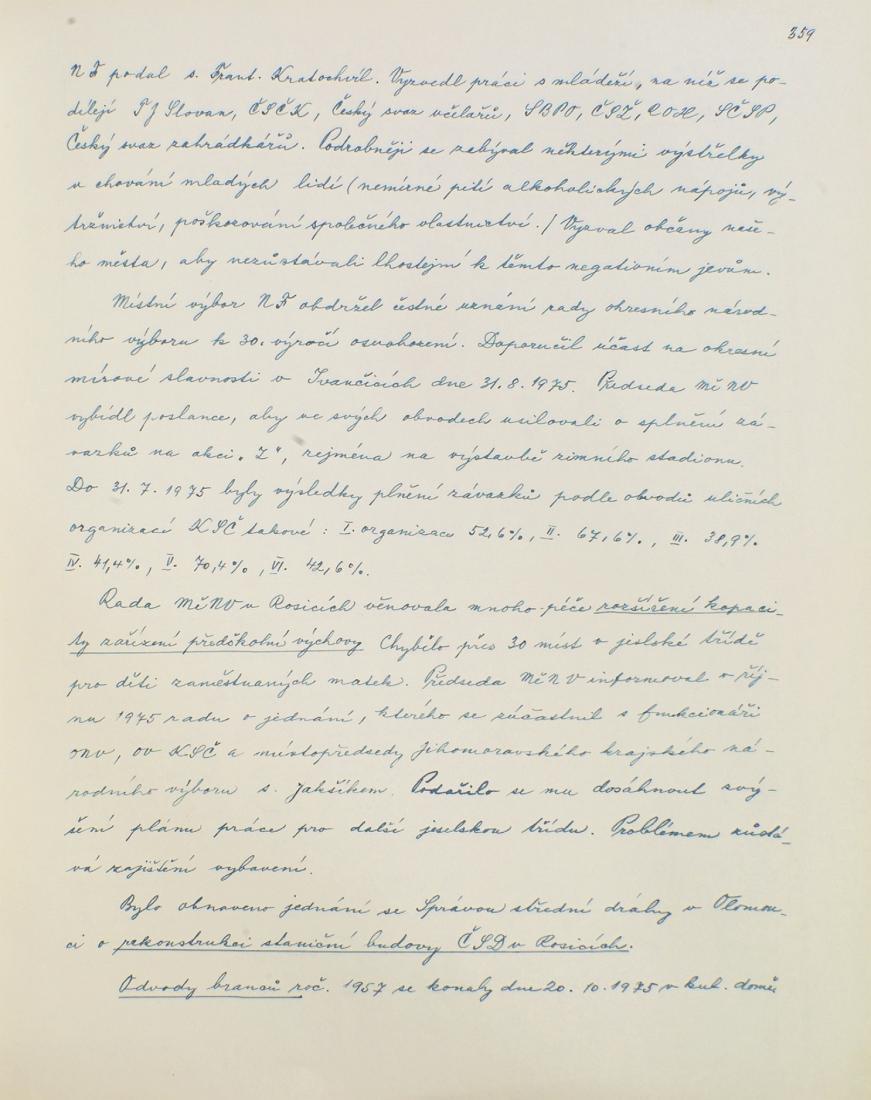 359
NF podal s. Frant. Kratochvíl. Vyzvedl práci s mládeží, na níž se po-
dílejí TJ Slovan, ČSČK, Český svaz včelařů, SBPO, ČSŽ, ROH, SČSP,
Český svaz zahrádkářů. Podrobněji se zabýval některými výstřelky
v chování mladých lidí (nemírné pití alkoholických nápojů, vý-
tržnictví, poškozování společného vlastnictví./ Vyzval občany naše-
ho města, aby nezůstávali lhostejní k těmto negativním jevům.
Místní výbor NF obdržel čestné uznání rady okresního národ-
ního výboru k 30. výročí osvobození. Doporučil účast na okresní
mírové slavnosti v Ivančicích dne 31.8.1975. Předseda MěNV
vybídl poslance, aby ve svých obvodech usilovali o splnění zá-
vazků na akci „Z", zejména na výstavbě zimního stadionu.
Do 31.7.1975 byly výsledky plnění závazků podle obvodů uličních
organizací KSČ takové: I. organizace 52,6%, II. 67,6%, III. 38,9%
IV. 41,4%, V. 70,4%, VI. 42,6%.
Rada MěNV v Rosicích věnovala mnoho péče rozšíření kapaci-
ty zařízení předškolní výchovy Chybělo přes 30 míst v jeslské třídě
pro děti zaměstnaných matek. Předseda MěNV informoval v říj-
nu 1975 radu o jednání, kterého se zúčastnil s funkcionáři
ONV, OV KSČ a místopředsedy Jihomoravského krajského ná-
rodního výboru s. Jakšíkem. Podařilo se mu dosáhnout zvý-
šení plánu práce pro další jeselskou třídu. Problémem zůstá-
vá zajištění vybavení.
Bylo obnoveno jednání se Správou střední dráhy v Olomou-
ci o rekonstrukci staniční budovy ČSD v Rosicích.
Odvody branců roč. 1957 se konaly dne 20.10.1975 v kul. domě